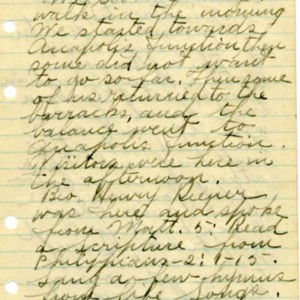 walk in the morning
We started towards
Anapolis Junction then
some did not want
to go so far. Then some
of us returned to the
barracks, and the
balance went to
Anapolis Junction.
Visitors were here in
the afternoon.
Bro Henry Keener
was here and spoke
from Matt. 5: Read
a scripture from
Philyppians-2: 1-15.
sang a few hymns
from Life Songs